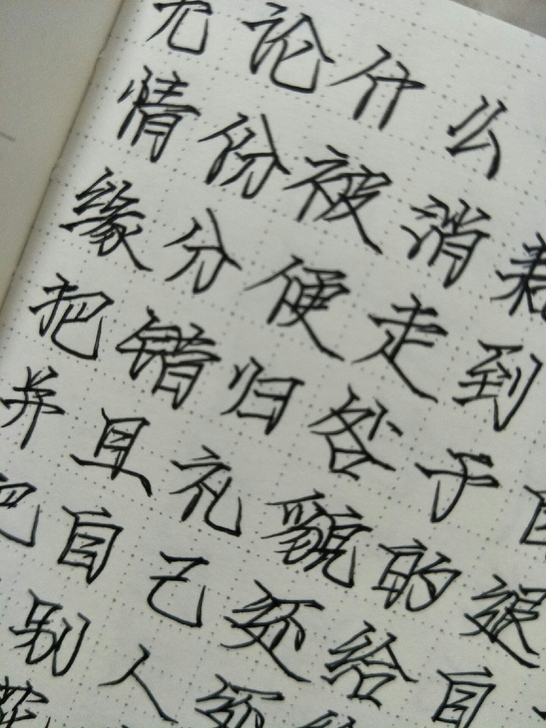 无论什么
情份被消耗
缘分便走到
把错归咎于自
并且礼貌的退
把自己还给自
别人还